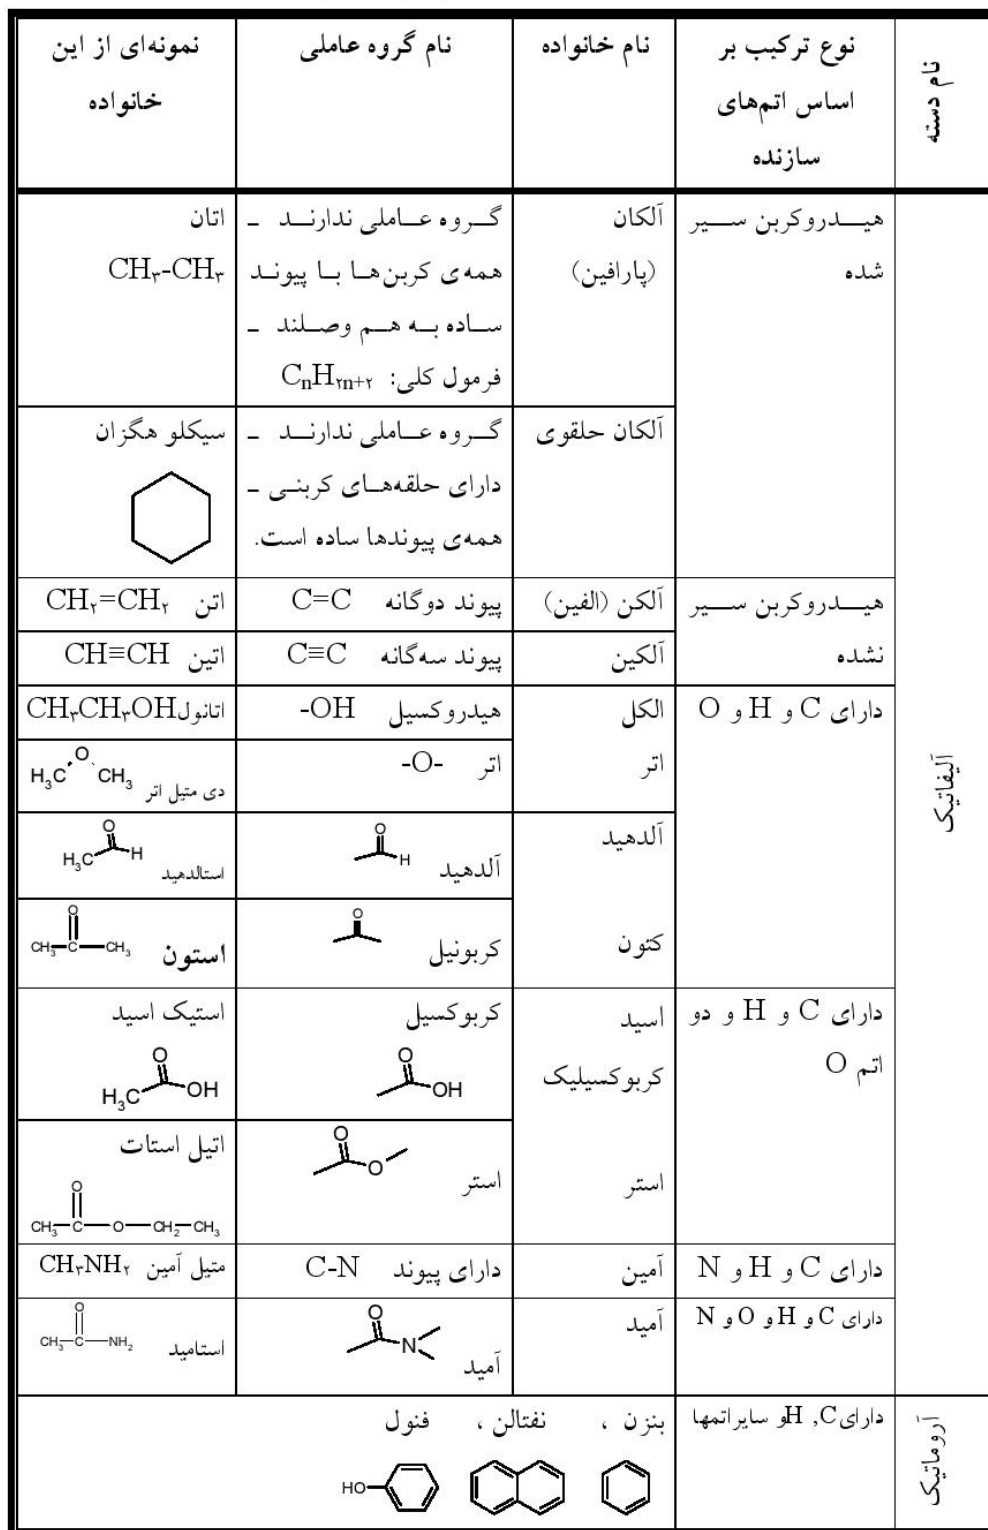 نام دسته
نوع ترکیب بر
اساس اتم‌های
سازنده
نام خانواده
نام گروه عاملی
نمونه‌ای از این
خانواده
آلیفاتیک
هیدروکربن سیر
شده
آلکان
(پارافین)
گروه عاملی ندارند -
همه‌ی کربن‌ها با پیوند
ساده به هم وصلند -
فرمول کلی: CnH۲n+۲
اتان
CH۳-CH۳
آلکان حلقوی
گروه عاملی ندارند -
دارای حلقه‌های کربنی -
همه‌ی پیوندها ساده است.
سیکلو هگزان
هیدروکربن سیر
نشده
آلکن (الفین)
پیوند دوگانه C=C
اتن CH۲=CH۲
آلکین
پیوند سه‌گانه C≡C
اتین CH≡CH
دارای C و H و O
الکل
هیدروکسیل -OH
اتانول CH۳CH۲OH
اتر
اتر -O-
H3C O CH3
دی متیل اتر
آلدهید
O
H
آلدهید
O
H3C H
استالدهید
کتون
O
کربونیل
O
CH3-C-CH3
استون
دارای C و H و دو
اتم O
اسید
کربوکسیلیک
کربوکسیل
O
OH
استیک اسید
O
H3C OH
استر
O
O
استر
اتیل استات
O
CH3-C-O-CH2-CH3
دارای C و H و N
آمین
دارای پیوند C-N
متیل آمین CH۳NH۲
دارای C و H و O و N
آمید
O
N
آمید
O
CH3-C-NH2
استامید
آروماتیک
دارای C, H و سایر اتمها
بنزن ، نفتالن ، فنول
HO